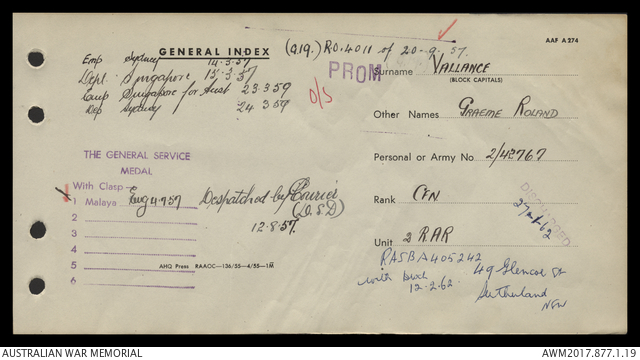 GENERAL INDEX
(a19.) R.O. 4011 of 20-9.57.
AAF A274
Emp Sydney 14.3.57
Dept. Singapore 15.3.57
Emp Singapore for Aust 23.3.59
Dep Sydney 24.3.59
O/S
PROM
Surname VALLANCE
(BLOCK CAPITALS)
Other Names GRAEME ROLAND
Personal or Army No. 2/42767
Rank CFN
DISCHARGED
27-1-62
Unit 2 RAR
THE GENERAL SERVICE
MEDAL
With Clasp
1 Malaya
2
3
4
5
6
Despatched by Courier
(D.S.D)
12.8.57.
AHQ Press RAAOC—136/55—4/55—1M
RASBA405242
with
12.2.62.
49 Glencoe St
Sutherland
NSW
AUSTRALIAN WAR MEMORIAL
AWM2017.877.1.19